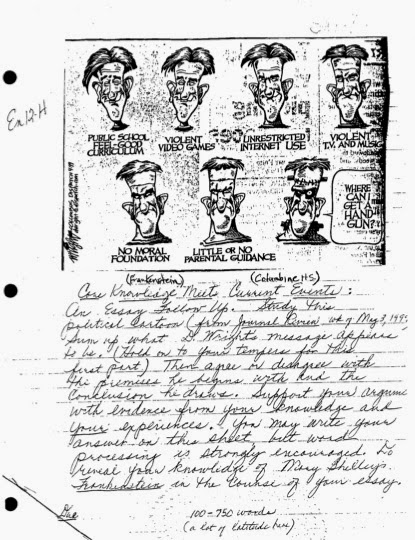 En 12-H
PUBLIC SCHOOL
FEEL-GOOD
CURRICULUM
VIOLENT
VIDEO GAMES
UNRESTRICTED
INTERNET USE
VIOLENT
T.V. AND MUSIC
NO MORAL
FOUNDATION
LITTLE OR NO
PARENTAL GUIDANCE
WHERE
CAN I
GET A
HAND
GUN?
(Frankenstein) (Columbine HS)
Core Knowledge Meets Current Events:
An Essay Follow Up. Study this
political cartoon (from Journal Review wk of May 3, 1999
Sum up what D. Wright's message appears
to be. (Hold on to your tempers for this
first part) Then agree or disagree with
the premises he begins with and the
conclusion he draws. Support your argume
with evidence from your knowledge and
your experiences. You may write your
answer on this sheet, but word
processing is strongly encouraged. Do
reveal your knowledge of Mary Shelley's
Frankenstein in the course of your essay.
Due
100-750 words
(a lot of latitude here)